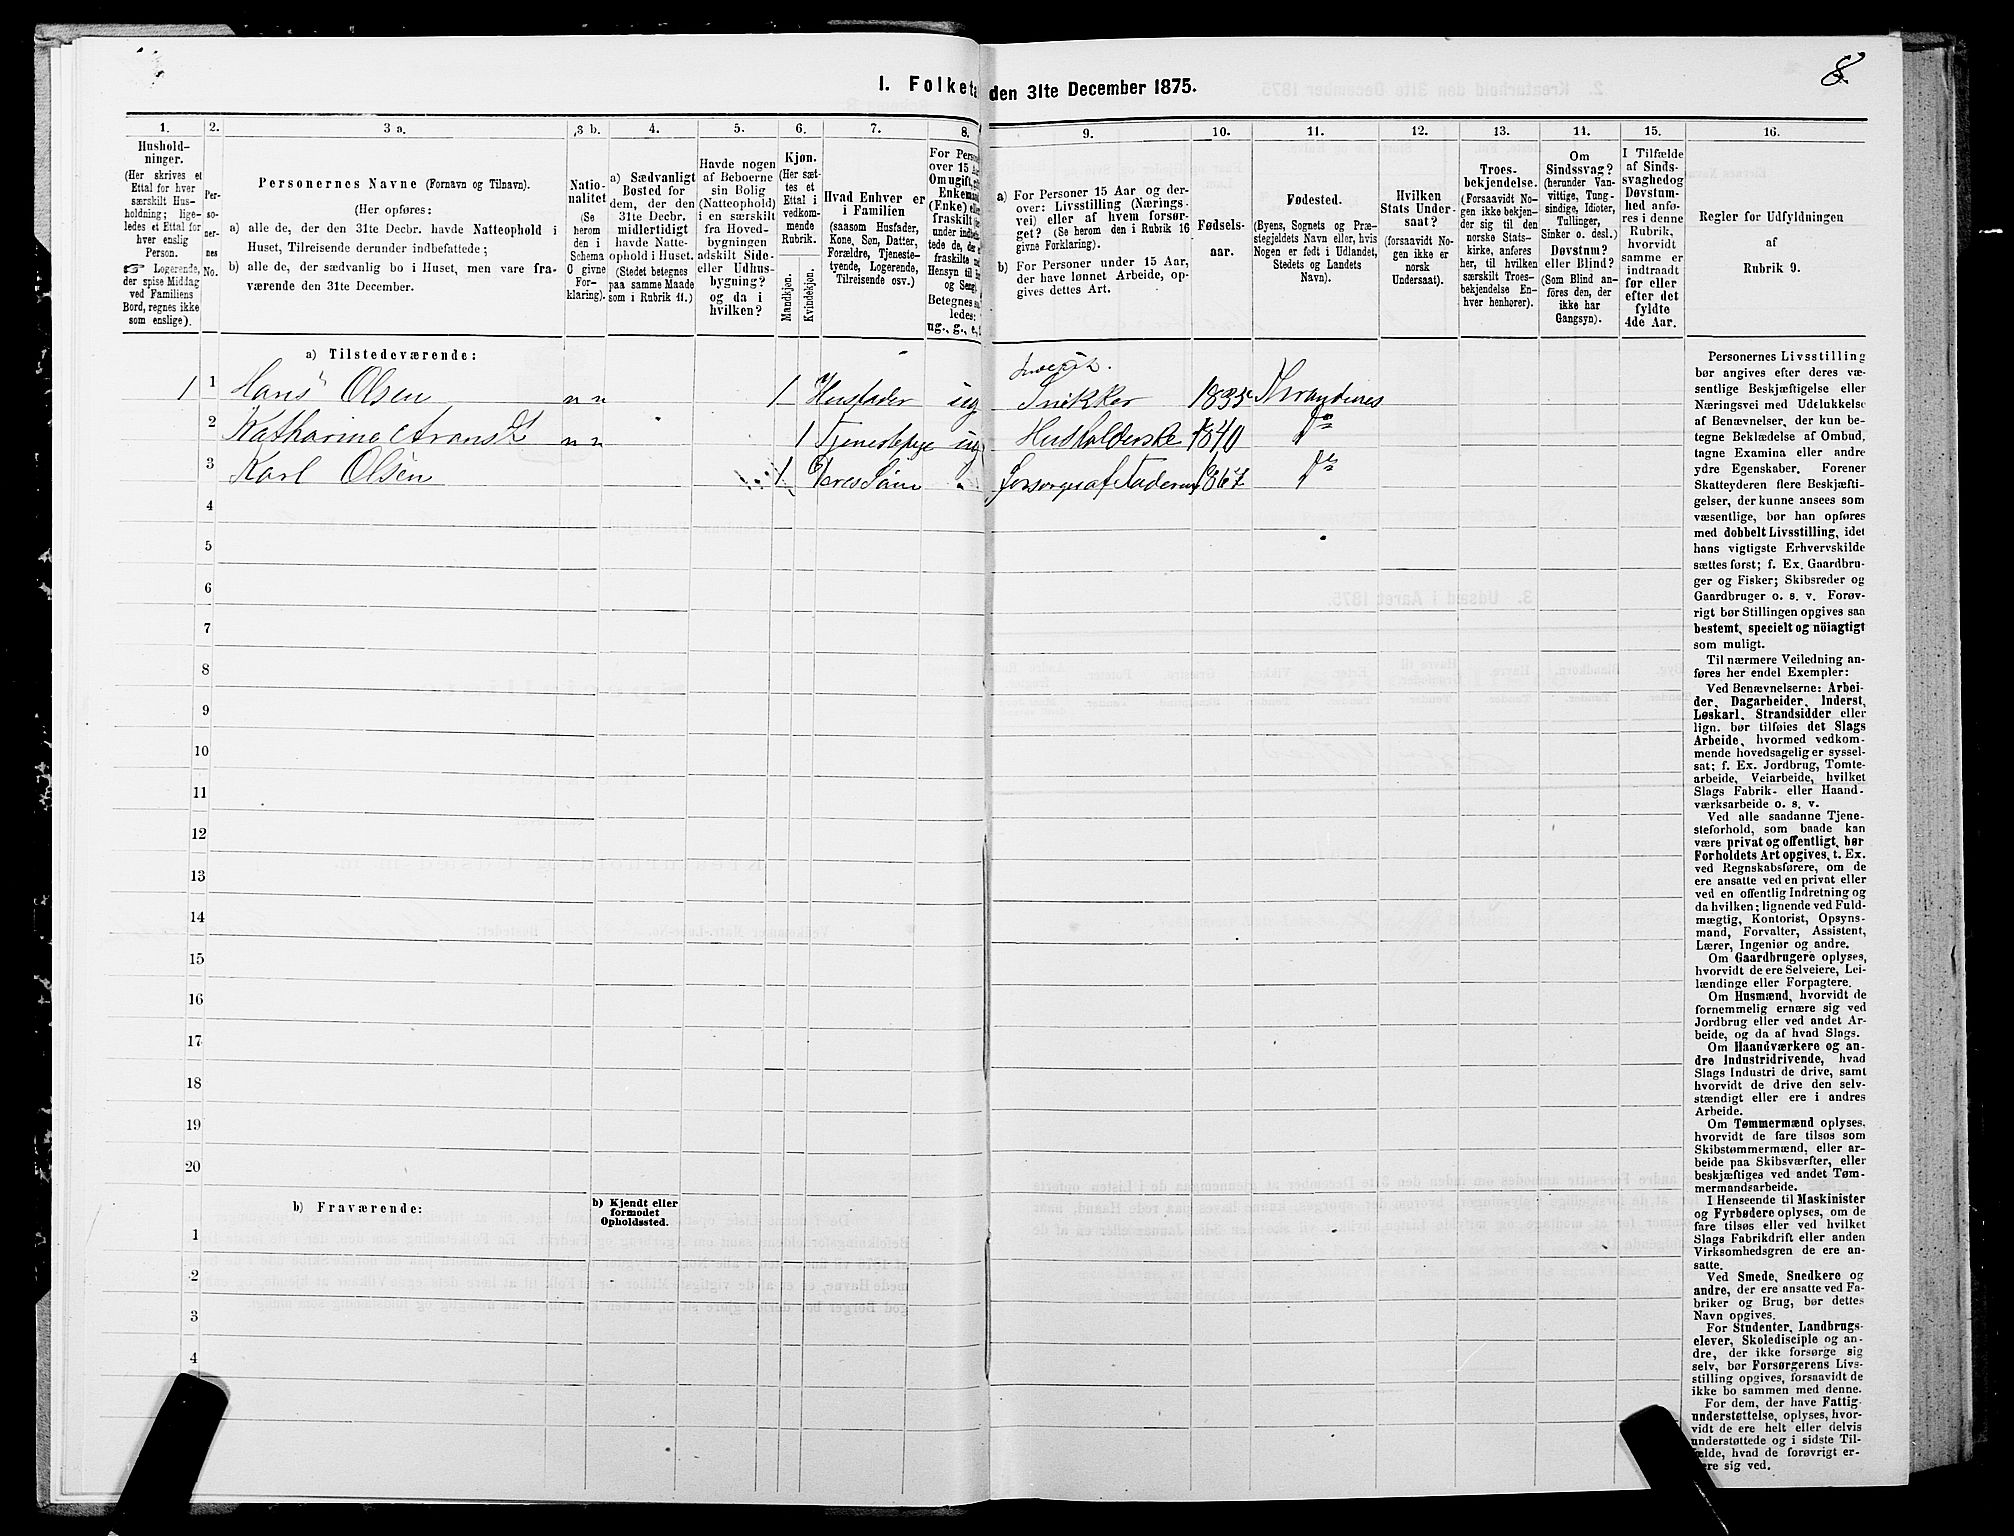 I. Folketa den 31te December 1875.
8
1.
2.
3 a.
3 b.
4.
5.
6.
7.
8.
9.
10.
11.
12.
13.
14.
15.
16.
Hushold-
ninger.
(Her skrives et
Ettal for hver
særskilt Hus-
holdning; lige-
ledes et Ettal for
hver enslig
Person.
☞ Logerende,
der spise Middag
ved Familiens
Bord, regnes ikke
som enslige).
Per-
so-
ner-
nes
No.
Personernes Navne (Fornavn og Tilnavn).
(Her opføres:
a) alle de, der den 31te Decbr. havde Natteophold i
Huset, Tilreisende derunder indbefattede;
b) alle de, der sædvanlig bo i Huset, men vare fra-
værende den 31te December.
Natio-
nalitet
(Se
herom
den i
Schema
C givne
For-
klaring).
a) Sædvanligt
Bosted for
dem, der den
31te Decbr.
midlertidigt
havde Natte-
ophold i Huset.
(Stedet betegnes
paa samme Maade
som i Rubrik 11.)
Havde nogen
af Beboerne
sin Bolig
(Natteophold)
i en særskilt
fra Hoved-
bygningen
adskilt Side-
eller Udhus-
bygning?
og da i
hvilken?
Kjøn.
(Her sæt-
tes et
Ettal i
vedkom-
mende
Rubrik.
Mandkjøn.
Kvindekjøn.
Hvad Enhver er
i Familien
(saasom Husfader,
Kone, Søn, Datter,
Forældre, Tjeneste-
tyende, Logerende,
Tilreisende osv.)
For Perso
over 15 Aa
Om ugift, gi
Enkema
(Enke) el
fraskilt
under indbe
tede de, de
fraskilte
Hensyn til
og Seng
Betegnes s
ledes:
ug., g., e.,
a) For Personer 15 Aar og der-
over: Livsstilling (Nærings-
vei) eller af hvem forsør-
get? (Se herom den i Rubrik 16
givne Forklaring).
b) For Personer under 15 Aar,
der have lønnet Arbeide, op-
gives dettes Art.
Fødsels-
aar.
Fødested.
(Byens, Sognets og Præ-
stegjeldets Navn eller, hvis
Nogen er født i Udlandet,
Stedets og Landets
Navn).
Hvilken
Stats Under-
saat?
(forsaavidt No-
gen ikke er
norsk
Undersaat).
Troes-
bekjendelse.
(Forsaavidt No-
gen ikke bekjen-
der sig til den
norske Stats-
kirke, anføres
her, til hvilken
særskilt Troes-
bekjendelse En-
hver henhører).
Om
Sindssvag?
(herunder Van-
vittige, Tung-
sindige, Idioter,
Tullinger,
Sinker o. desl.)
Døvstum?
eller Blind?
(Som Blind an-
føres den, der
ikke har
Gangsyn).
I Tilfælde
af Sinds-
svaghed og
Døvstum-
hed anfø-
res i denne
Rubrik,
hvorvidt
samme er
indtraadt
før eller
efter det
fyldte
4de Aar.
Regler for Udfyldningen
af
Rubrik 9.
a) Tilstedeværende:
1 1 Hans Olsen n n 1 Husfader ug Snekker 1835 Strandenes
2 Katharine n n 1 Tjenestepige ug Husholderske 1840 Do
3 Karl Olsen 1 Søn forsørges af Faderen 1867 Do
4
5
6
7
8
9
10
11
12
13
14
15
16
17
18
19
20
b) Fraværende:
b) Kjendt eller
formodet
Opholdssted.
1
2
3
4
Personernes Livsstilling
bør angives efter deres væ-
sentlige Beskjæftigelse eller
Næringsvei med Udelukkelse
af Benævnelser, der kun be-
tegne Beklædelse af Ombud,
tagne Examina eller andre
ydre Egenskaber. Forener
Skatteyderen flere Beskjæfti-
gelser, der kunne ansees som
væsentlige, bør han opføres
med dobbelt Livsstilling, idet
hans vigtigste Erhvervskilde
sættes først; f. Ex. Gaardbru-
ger og Fisker; Skibsreder og
Gaardbruger o. s. v. Forøv-
rigt bør Stillingen opgives saa
bestemt, specielt og nöiagtigt
som muligt.
Til nærmere Veiledning an-
føres her endel Exempler:
Ved Benævnelserne: Arbei-
der, Dagarbeider, Inderst,
Løskarl, Strandsidder eller
lign. bør tilføies det Slags
Arbeide, hvormed vedkom-
mende hovedsagelig er syssel-
sat; f. Ex. Jordbrug, Tomte-
arbeide, Veiarbeide, hvilket
Slags Fabrik- eller Haand-
værksarbeide o. s. v.
Ved alle saadanne Tjene-
steforhold, som baade kan
være privat og offentligt, bør
Forholdets Art opgives, t. Ex.
ved Regnskabsførere, om de
ere ansatte ved en privat eller
ved en offentlig Indretning og
da hvilken; lignende ved Fuld-
mægtig, Kontorist, Opsyns-
mand, Forvalter, Assistent,
Lærer, Ingeniør og andre.
Om Gaardbrugere oplyses,
hvorvidt de ere Selveiere, Lei-
lændinge eller Forpagtere.
Om Husmænd, hvorvidt de
fornemmelig ernære sig ved
Jordbrug eller ved andet Ar-
beide, og da af hvad Slags.
Om Haandværkere og an-
dre Industridrivende, hvad
Slags Industri de drive, samt
hvorvidt de drive den selv-
stændigt eller ere i andres
Arbeide.
Om Tømmermænd oplyses,
hvorvidt de fare tilsøs som
Skibstømmermænd, eller ar-
beide paa Skibsværfter, eller
beskjæftiges ved andet Tøm-
mermandsarbeide.
I Henseende til Maskinister
og Fyrbødere oplyses, om de
fare tilsøs eller ved hvilket
Slags Fabrikdrift eller anden
Virksomhedsgren de ere an-
satte.
Ved Smede, Snedkere og
andre, der ere ansatte ved Fa-
briker og Brug, bør dettes
Navn opgives.
For Studenter, Landbrugs-
elever, Skoledisciple og an-
dre, der ikke forsørge sig
selv, bør Forsørgerens Livs-
stilling opgives, forsaavidt de
ikke bo sammen med denne.
For dem, der have Fattig-
understøttelse, oplyses, hvor-
vidt de ere helt eller delvis
understøttede og i sidste Til-
fælde, hvad de forøvrigt er-
nære sig ved.